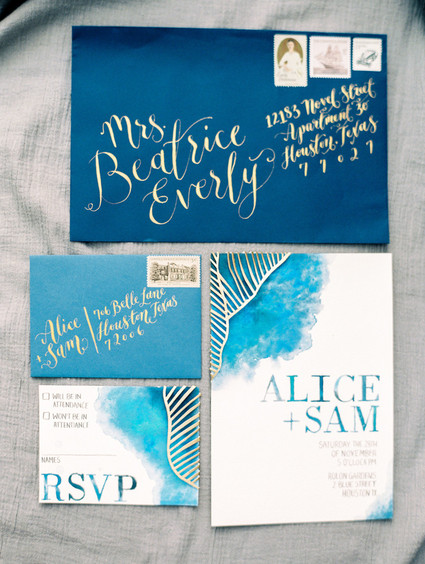 Mrs.
Beatrice
Everly
12183 Novel Street
Apartment 30
Houston, Texas
77027
Alice
+ Sam
706 Belle Lane
Houston, Texas
72006
WILL BE IN
ATTENDANCE
WON'T BE IN
ATTENDANCE
NAMES
RSVP
ALICE
+SAM
SATURDAY THE
OF NOVEMBER
5 O'CLOCK PM
GARDENS
2 BLUE STREET
HOUSTON